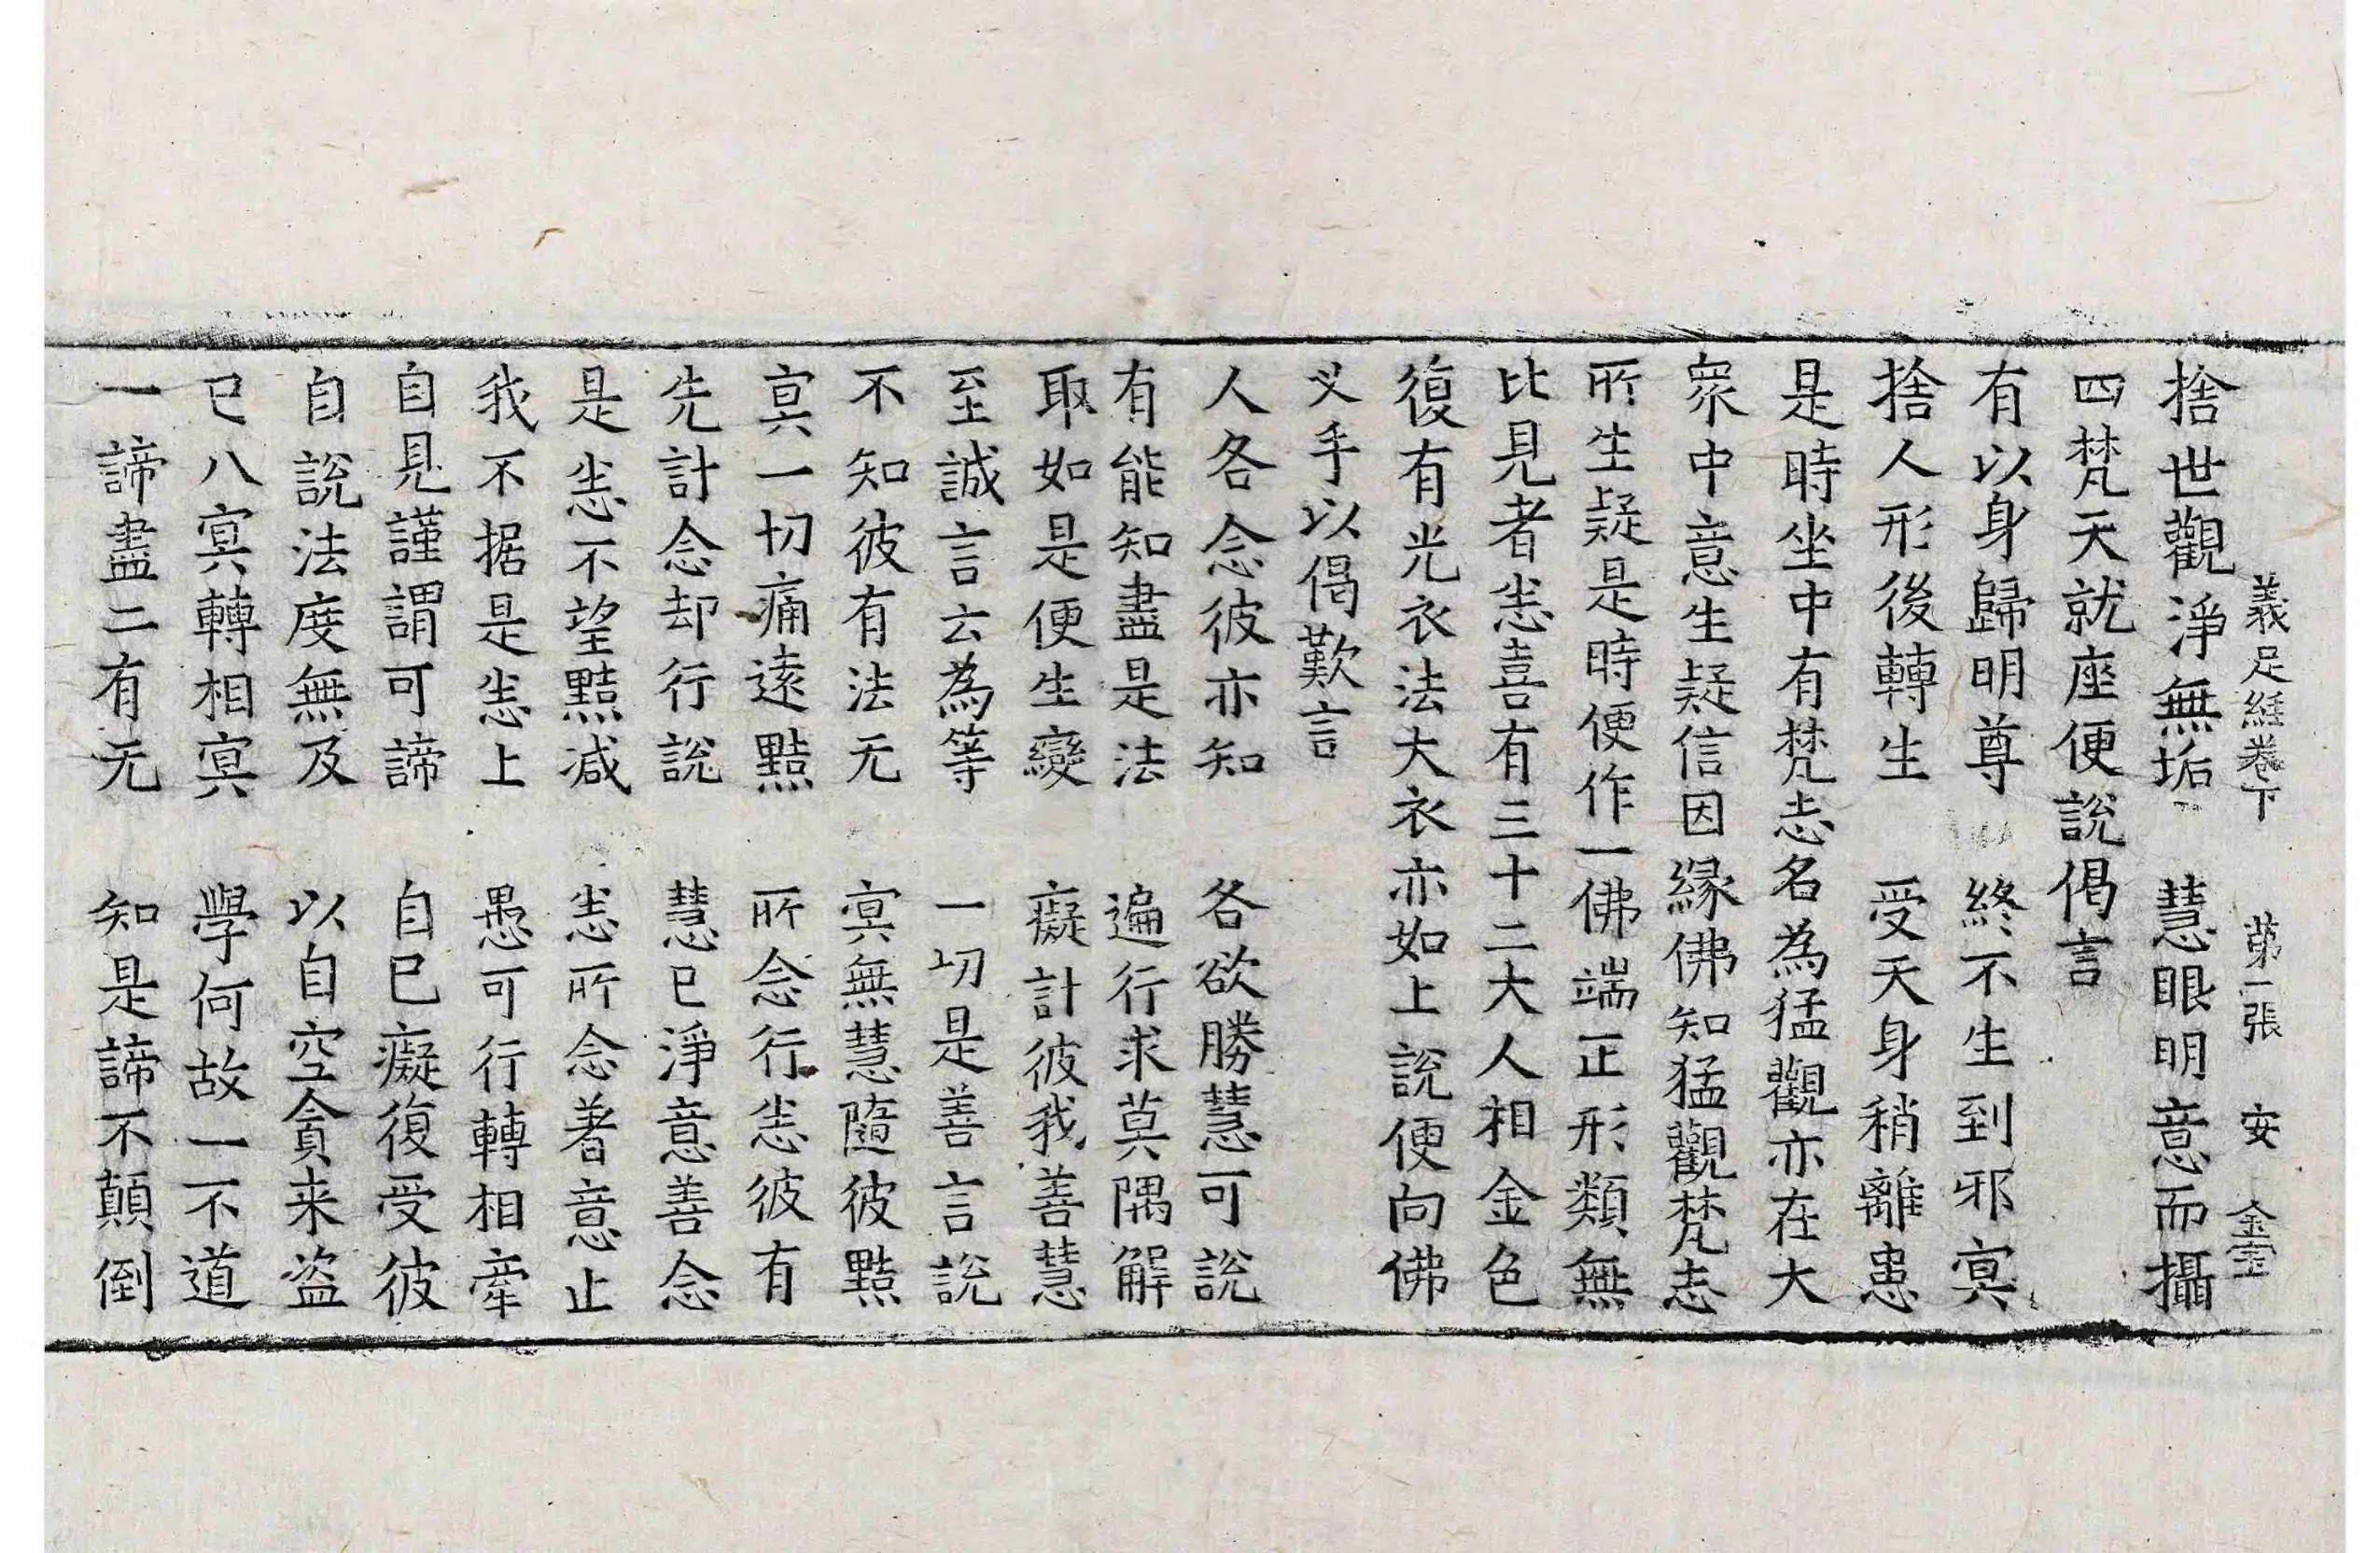 義足經卷下　第二張　安　金室
捨世觀淨無垢　慧眼明意而攝
四梵天就座便說偈言
有以身歸明尊　終不生到邪㝠
捨人形後轉生　受天身稍離患
是時坐中有梵志名為猛觀亦在大
衆中意生疑信因縁佛知猛觀梵志
所生疑是時便作一佛端正形類無
比見者恙喜有三十二大人相金色
復有光衣法大衣亦如上說便向佛
叉手以偈歎言
人各念彼亦知　各欲勝慧可說
有能知盡是法　遍行求莫隅解
取如是便生變　癡計彼我善慧
至誠言云為等　一切是善言說
不知彼有法无　㝠無慧隨彼黠
㝠一切痛遠黠　所念行恙彼有
先計念却行說　慧已淨意善念
是恙不望黠减　恙所念著意止
我不据是恙上　愚可行轉相牽
自見謹謂可諦　自已癡復受彼
自說法度無及　以自空貪来盗
已八㝠轉相㝠　學何故一不道
一諦盡二有无　知是諦不顛倒